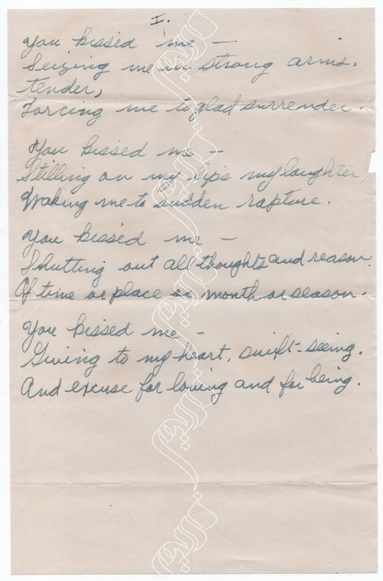 I.
You kissed me —
Seizing me in strong arms,
tender,
Forcing me to glad surrender.
You kissed me —
Stilling on my lips my laughter
Waking me to sudden rapture.
You kissed me —
Shutting out all thoughts and reason.
Of time or place or month or season.
You kissed me —
Giving to my heart, swift-seeing,
And excuse for loving and for being.